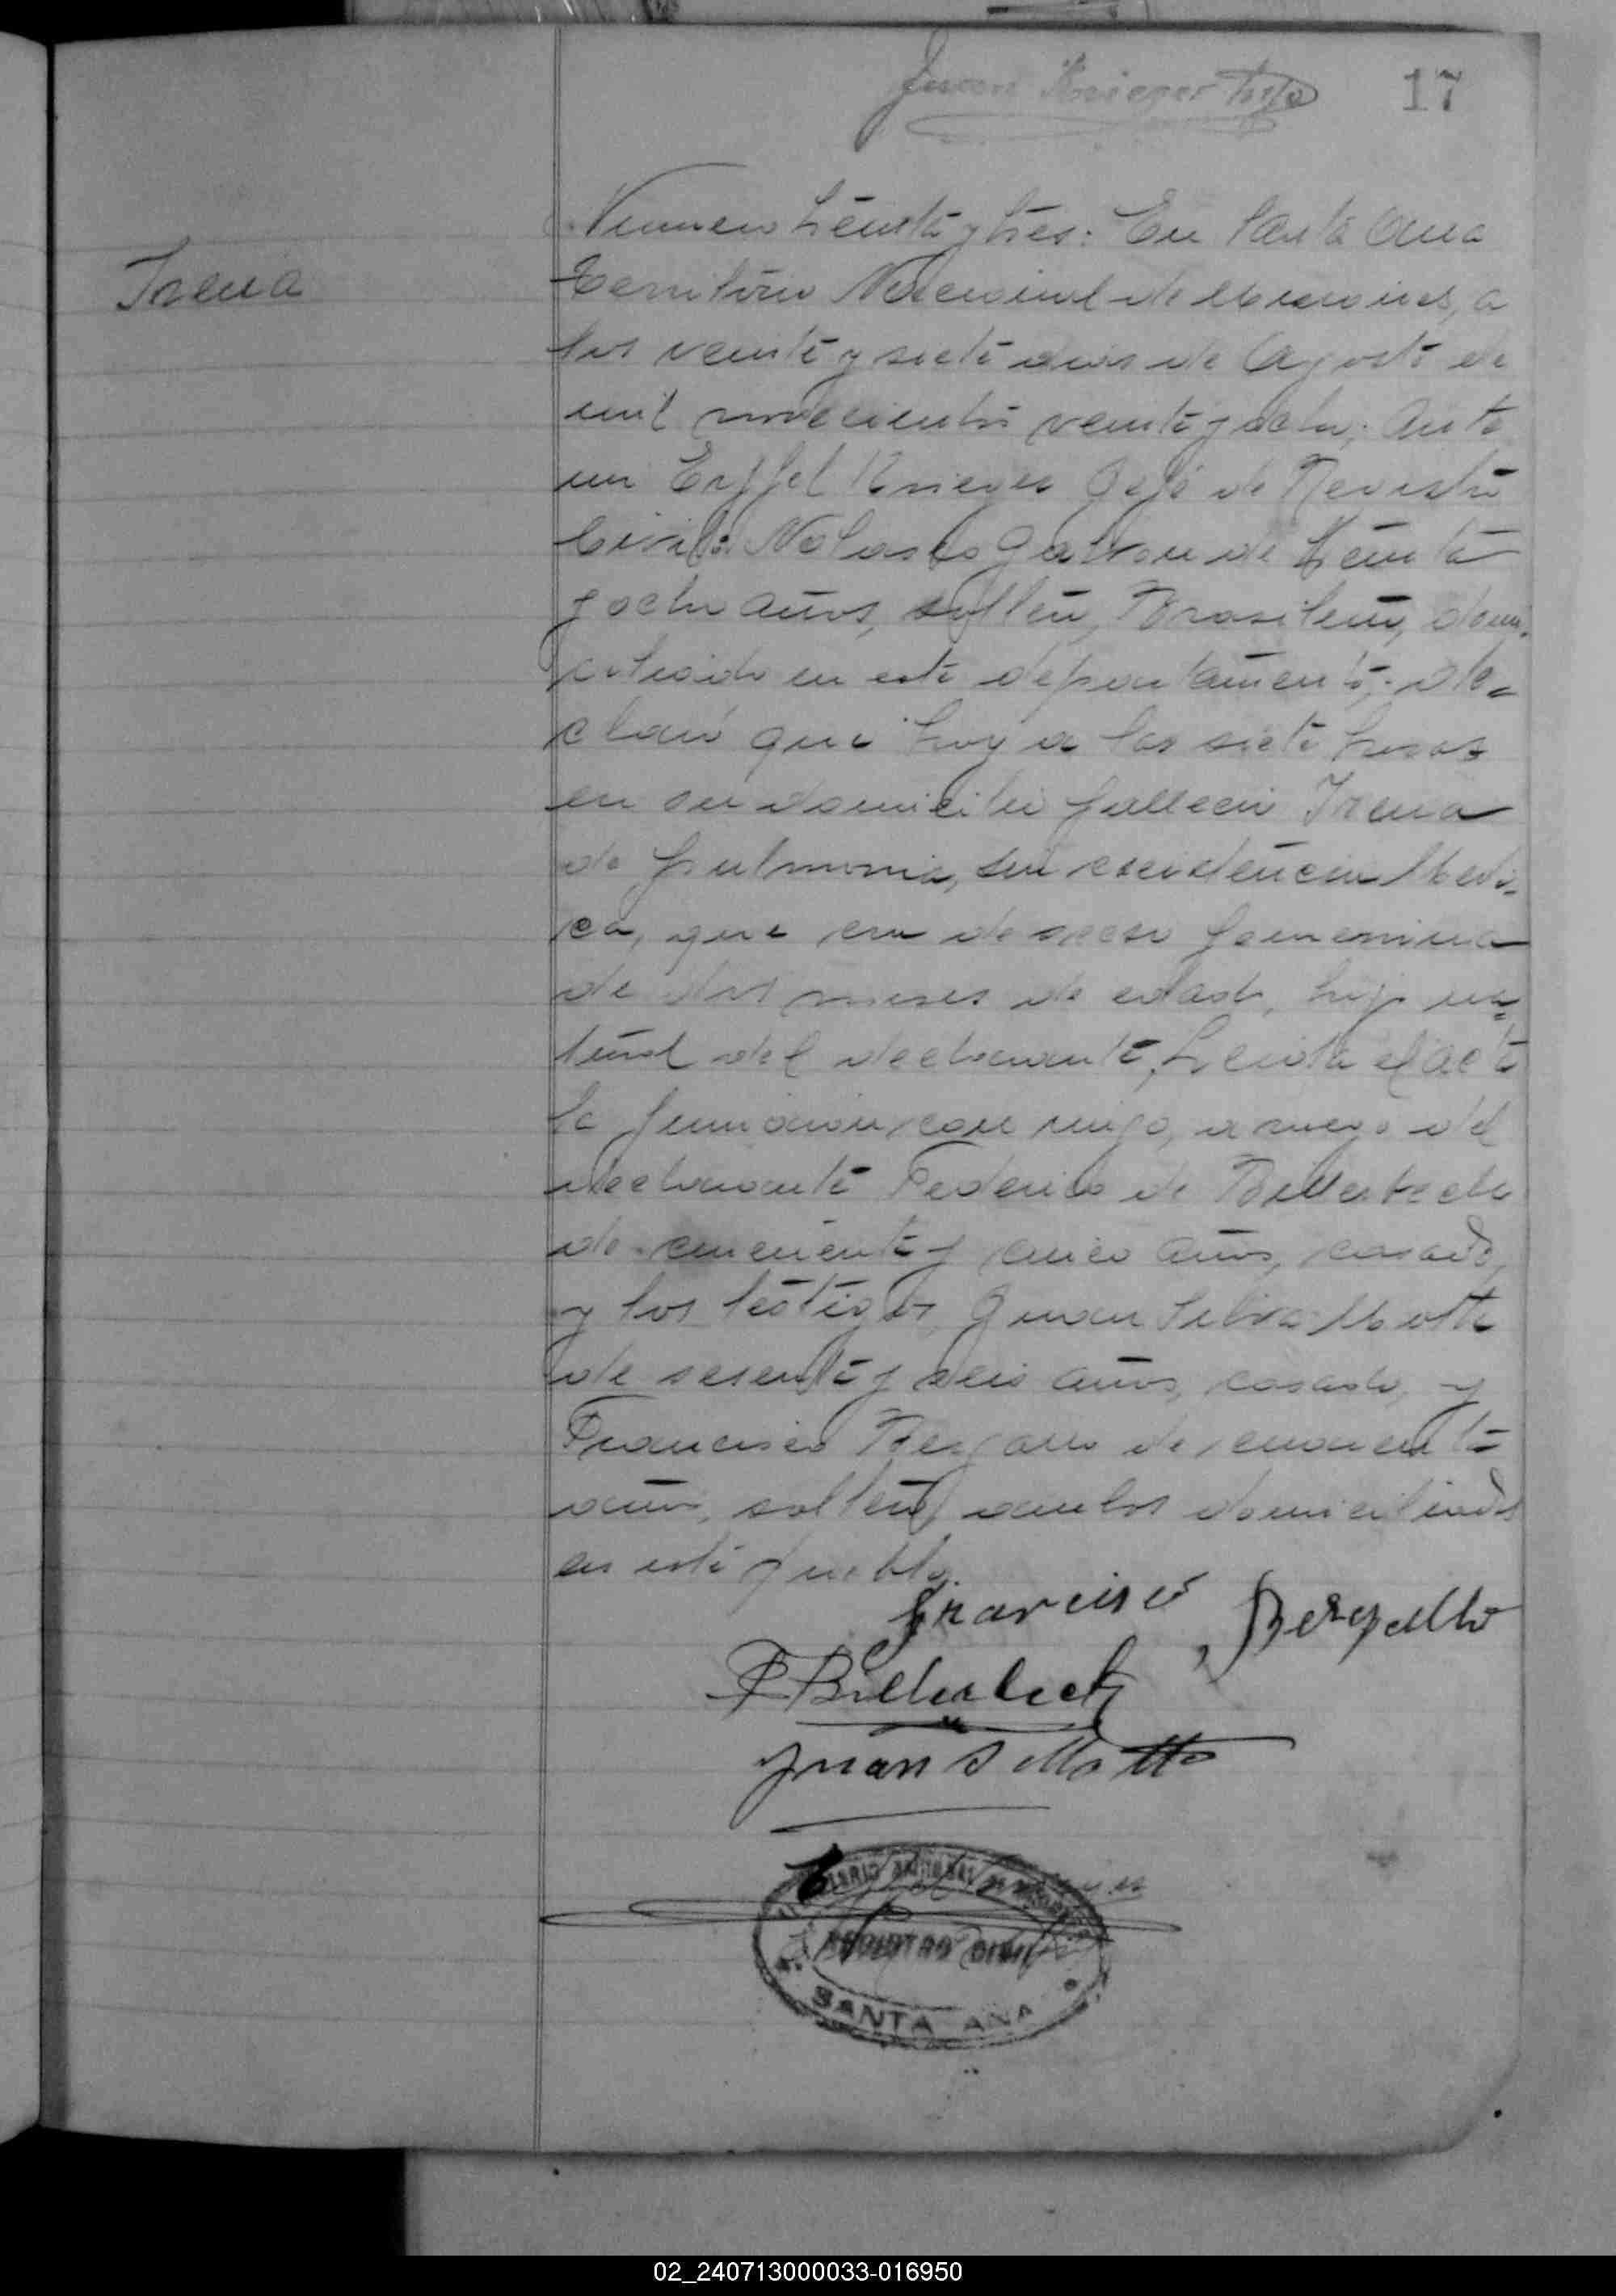 Juan Krieger hijo
17
Irena
Numero treinta y tres: En Santa Ana
Territorio Nacional de Misiones, a
los veinte y siete dias de Agosto de
mil novecientos veinte y ocho; Ante
mi Eyffel Krieger Gefe de Registro
Civil: Nolasco de treinta
y ocho años, soltero, Brasilero, domi-
ciliado en este departamento; de-
claró que hoy a las siete horas
en su domicilio fallecio Irena
de pulmonia, sin Medi-
ca, que era de secso femenina
de dos meses de edad, hija na-
tural del declarante, Leida el acta
la firmaron con migo, a ruego del
declarante Federico de Billerbeck
de cincuenta y cinco años, casado,
y los testigos, Juan Silva Motta
de sesenta y seis años, casado, y
Francisco Bergallo de cuarenta
años, soltero, ambos domiciliados
en este pueblo.
Francisco Bergallo
F Billerbeck
Juan S Motta
REGISTRO CIVIL
SANTA ANA
02_240713000033-016950